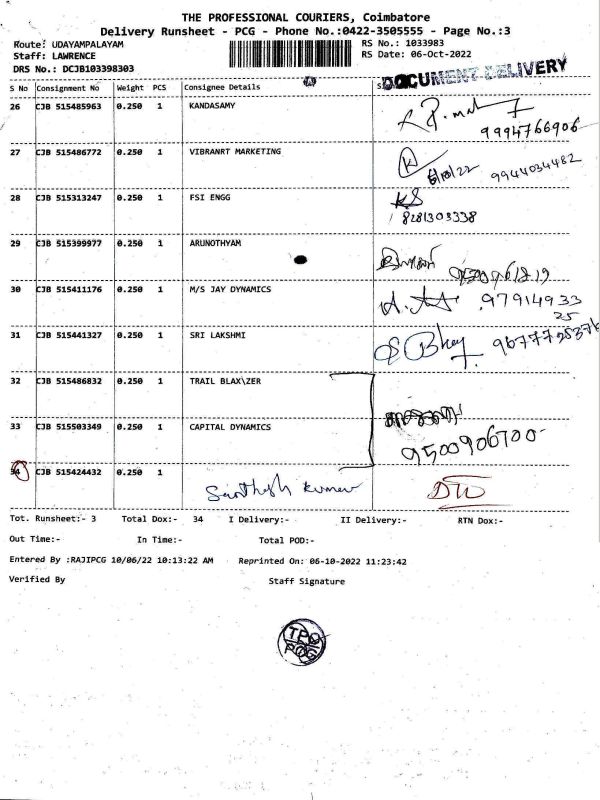 THE PROFESSIONAL COURIERS, Coimbatore
Delivery Runsheet - PCG - Phone No.:0422-3505555 - Page No.:3
Route: UDAYAMPALAYAM RS No.: 1033983
Staff: LAWRENCE RS Date: 06-Oct-2022
DRS No.: DCJB103398303
DOCUMENT DELIVERY
S No Consignment No Weight PCS Consignee Details
26 CJB 515485963 0.250 1 KANDASAMY
9994766906
27 CJB 515486772 0.250 1 VIBRANRT MARKETING
6/10/22 9944034482
28 CJB 515313247 0.250 1 FSI ENGG KS
8281303338
29 CJB 515399977 0.250 1 ARUNOTHYAM
30 CJB 515411176 0.250 1 M/S JAY DYNAMICS 97914933
25
31 CJB 515441327 0.250 1 SRI LAKSHMI
32 CJB 515486832 0.250 1 TRAIL BLAX\ZER
33 CJB 515503349 0.250 1 CAPITAL DYNAMICS
9500906700
34 CJB 515424432 0.250 1
Santhosh Kumar
Tot. Runsheet:- 3 Total Dox:- 34 I Delivery:- II Delivery:- RTN Dox:-
Out Time:- In Time:- Total POD:-
Entered By :RAJIPCG 10/06/22 10:13:22 AM Reprinted On: 06-10-2022 11:23:42
Verified By Staff Signature
TPC
PCG